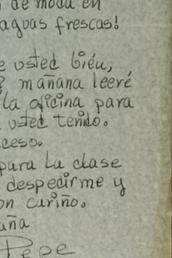 de moda en
aguas frescas!
e usted bién,
mañana leeré
la oficina para
usted tenido.
ceso.
para La clase
despedirme y
on cariño.
uña
Pepe